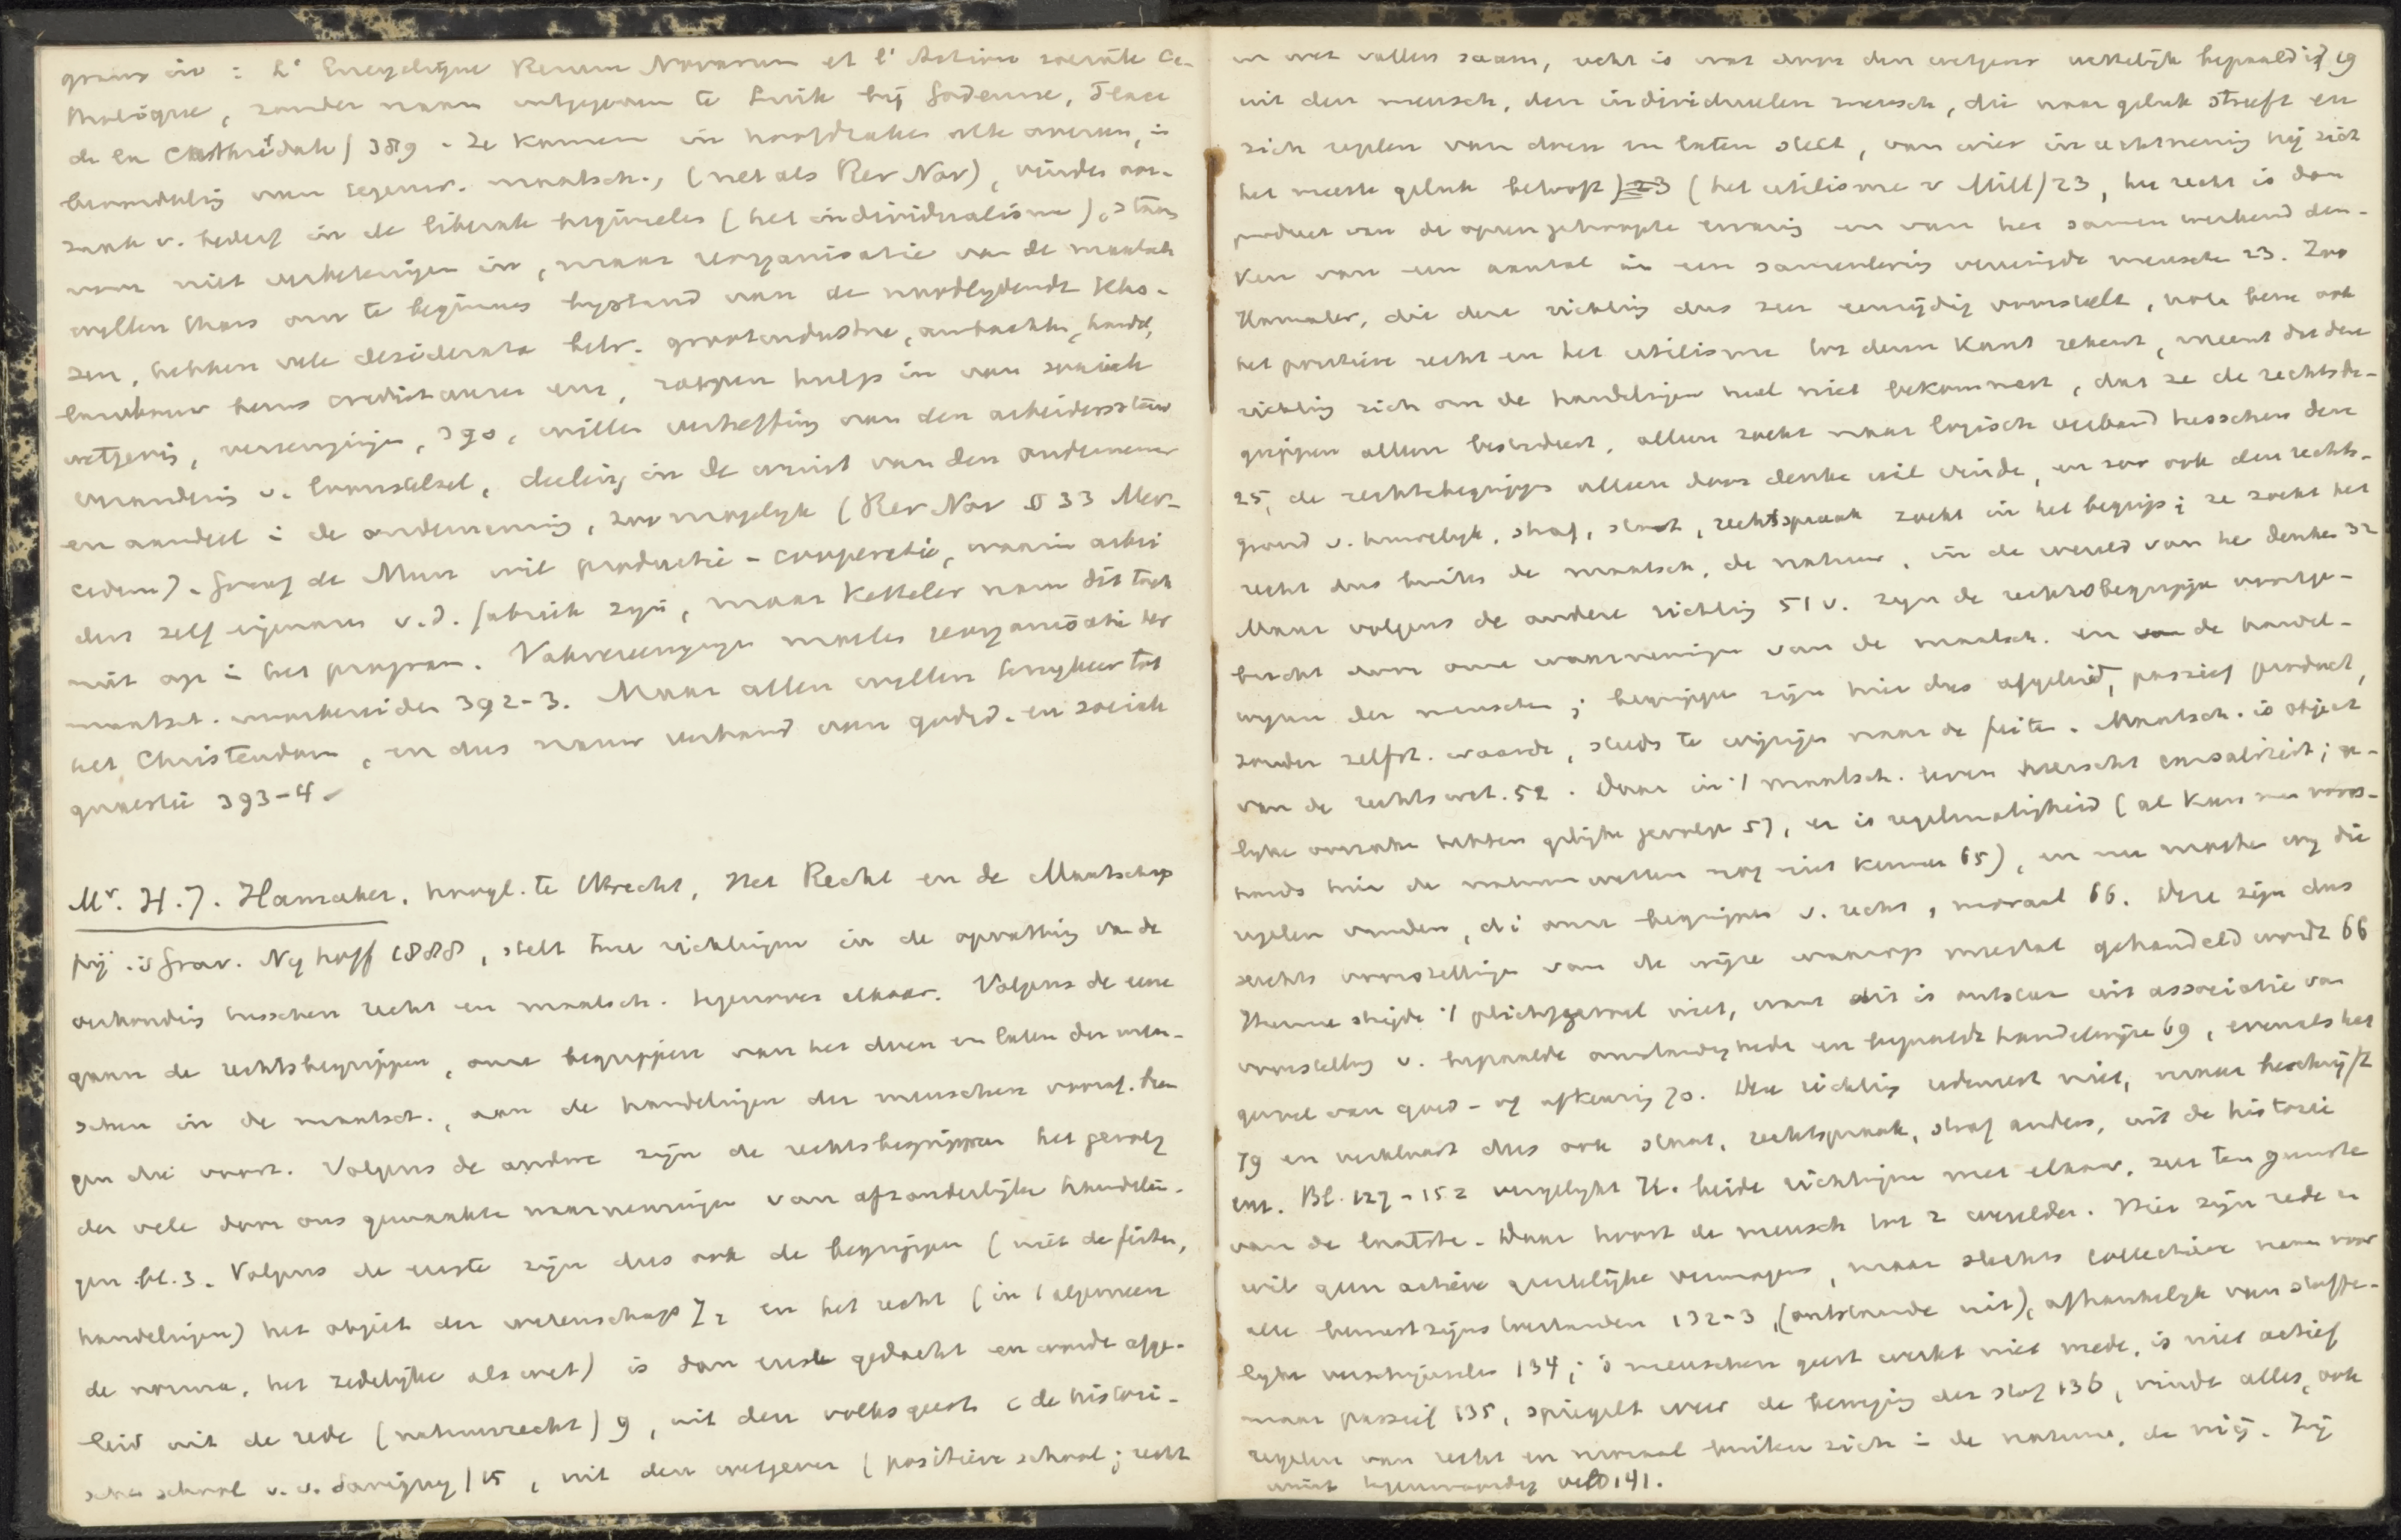 gramm in : L' Encyclique Rerum Novarum et l' Action sociale Ca-
tholique, zonder naam uitgegeven te Luik bij Godenne, Place
de la Cathédrale) 389. Ze komen in hoofdzaken alle overeen, in
beoordeling van tegenw. maatsch., (net als Rer Nov), vinden oor-
zaak v. bederf in de liberale beginselen (het individualisme), staan
voor niet verbeteringen in, maar reorganisatie van de maatsch
willen thans om te beginnen bijstand van de noodlijdende klas-
sen, hebben vele desiderata betr. grootindustrie, ambachten, handel,
landbouw heeren credietwezen enz, roepen hulp in van sociale
wetgevig, vereenigingen, 390, willen verheffing van den arbeidersstand
verandering v. loonstelsel, deeling in de winst van den ondernemer
en aandeel i de onderneming, zoo mogelijk (Rer Nov § 33 Mer-
cedem). Graaf de Mun wil productie-cooperatie, waarin arbei
ders zelf eigenaars v.d. fabriek zijn, maar Ketteler nam dit toch
niet op in het program. Vakvereenigingen moeten reorganisatie der
maatsch. voorbereiden 392-3. Maar allen willen terugkeer tot
het Christendom, en dus nauw verband van godsd. en sociale
quaestie 393-4.
Mr. H. J. Hamaker, hoogl. te Utrecht, Het Recht en de Maatschap
pij. 's Grav. Nijhoff 1888, stelt twee richtingen in de opvatting van de
verhouding tusschen recht en maatsch. tegenover elkaar. Volgens de eene
gaan de rechtsbegrippen, onze begrippen van het doen en laten der men-
schen in de maatsch., aan de handelingen der menschen vooraf. bren
gen die voort. Volgens de andere zijn de rechtsbegrippen het gevolg
der vele door ons gemaakte waarnemingen van afzonderlijke handelin-
gen. bl. 3. Volgens de eerste zijn dus ook de begrippen (niet de feiten,
handelingen) het object der wetenschap 7, en het recht (in 't algemeen
de norma, het zedelijke als wet) is dan eerst gedacht en wordt afge-
leid uit de rede (natuurrecht) 9, uit den volksgeest (de histori-
sche school v. v. Savigny) 15, uit den wetgever (positieve school; recht
en wet vallen saam, recht is wat door den wetgever wettelijk bepaald is) 19
uit den mensch, den individueelen mensch, die naar geluk streeft en
zich regelen van doen en laten stelt, van wier inachtneming hij zich
het meeste geluk belooft) 23 (het utilisme v Mill) 23, het recht is dan
product van de opeengehoopte ervaring en van het samenwerkend den-
ken van een aantal in een samenleving vereenigde menschen 23. Zoo
Hamaker, die deze richting dus zeer eenzijdig voorstelt, nota bene ook
het positieve recht en het utilisme tot dezen kant rekent, meent dat deze
richting zich om de handelingen heel niet bekommert, dat ze de rechtsbe-
grippen alleen bestudeert, alleen zoekt naar logisch verband tusschen deze
25, de rechtsbegrippen alleen door denken wil vinden, en zoo ook den rechts-
grond v. huwelijk, straf, staat, rechtspraak zoekt in het begrip; ze zoekt het
recht dus buiten de maatsch., de natuur, in de wereld van het denken 32
Maar volgens de andere richting 51 v. zijn de rechtsbegrippen voortge-
bracht door onze waarnemingen van de maatsch. en de handel-
wijzen der menschen; begrippen zijn hier dus afgeleid, passief product,
zonder zelfst. waarde, steeds te wijzigen naar de feiten. Maatsch. is object
van de rechtswet. 52. Daar in 't maatsch. leven heerscht causaliteit; ge-
lijke oorzaken hebben gelijke gevolgen 57, er is regelmatigheid (al kunnen voors-
hands hier de natuurwetten nog niet kennen 65), en nu maken wij die
regelen vinden, di onze begrippen v. recht, moraal 66. Deze zijn dus
slechts voorstellingen van de wijze waarop meestal gehandeld wordt 66
Hiermee strijdt 't plichtgevoel niet, want dit is ontstaan uit associatie van
voorstelling v. bepaalde omstandigheden en bepaalde handelwijze 69, evenals het
gevoel van goed- of afkeuring 70. Deze richting redeneert niet, maar beschrijft
79 en verklaart dus ook staat, rechtspraak, straf anders, uit de historie
enz. Bl. 127-152 vergelijkt H. beide richtingen met elkaar, zeer ten gunste
van de laatste. Daar hoort de mensch tot 2 werelden. Hier zijn rede en
wil geen actieve geestelijke vermogens, maar slechts collectieve namen voor
alle bewustzijnstoestanden 132-3, (ontstaande uit), afhankelijk van stoffe-
lijke verschijnselen 134; 's menschen geest werkt niet mede, is niet actief
maar passief 135, spiegelt weer de beweging der stof 136, vindt alles, ook
regelen van recht en moraal buiten zich in de natuur, de mij. Hij
wint tegenwoordig veld 141.